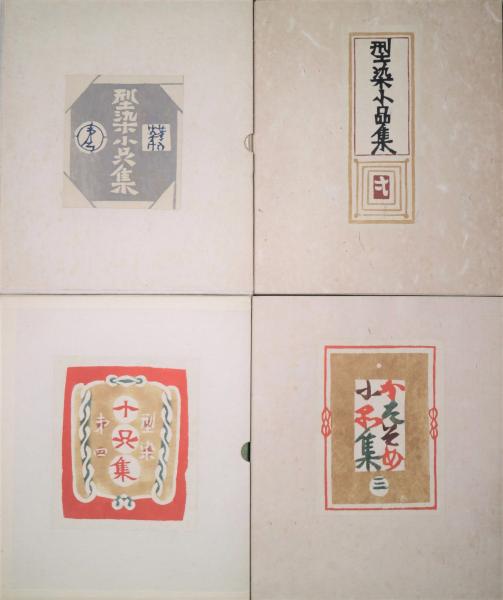 型染小品集
型染小品集
弐
型染
小品集
第四
かたぞめ
小品集
三